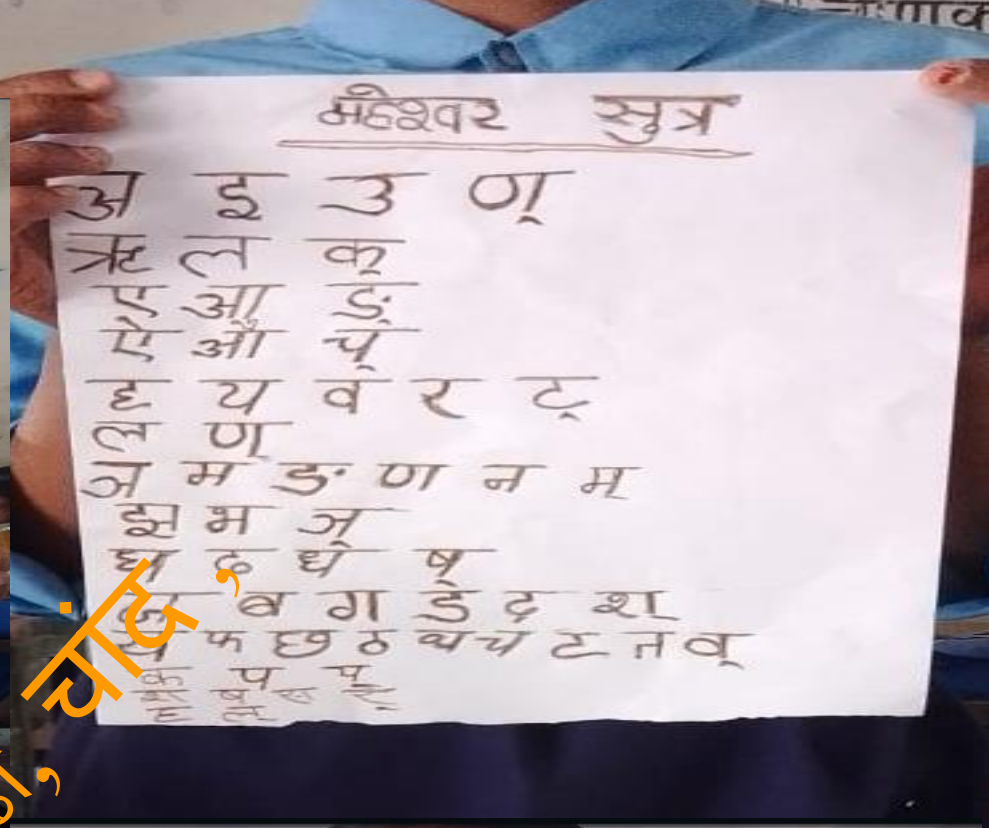 महेश्वर सुत्र
अ इ उ ण्
ऋ ल क्
ए ओ ङ्
ऐ औ च्
ह य व र ट्
ल ण्
ञ म ङ ण न म्
झ भ ञ्
घ ढ ध ष्
ज ब ग ड द श्
फ छ ठ थ च ट त व्
क प य्
ह ल्
चांद,